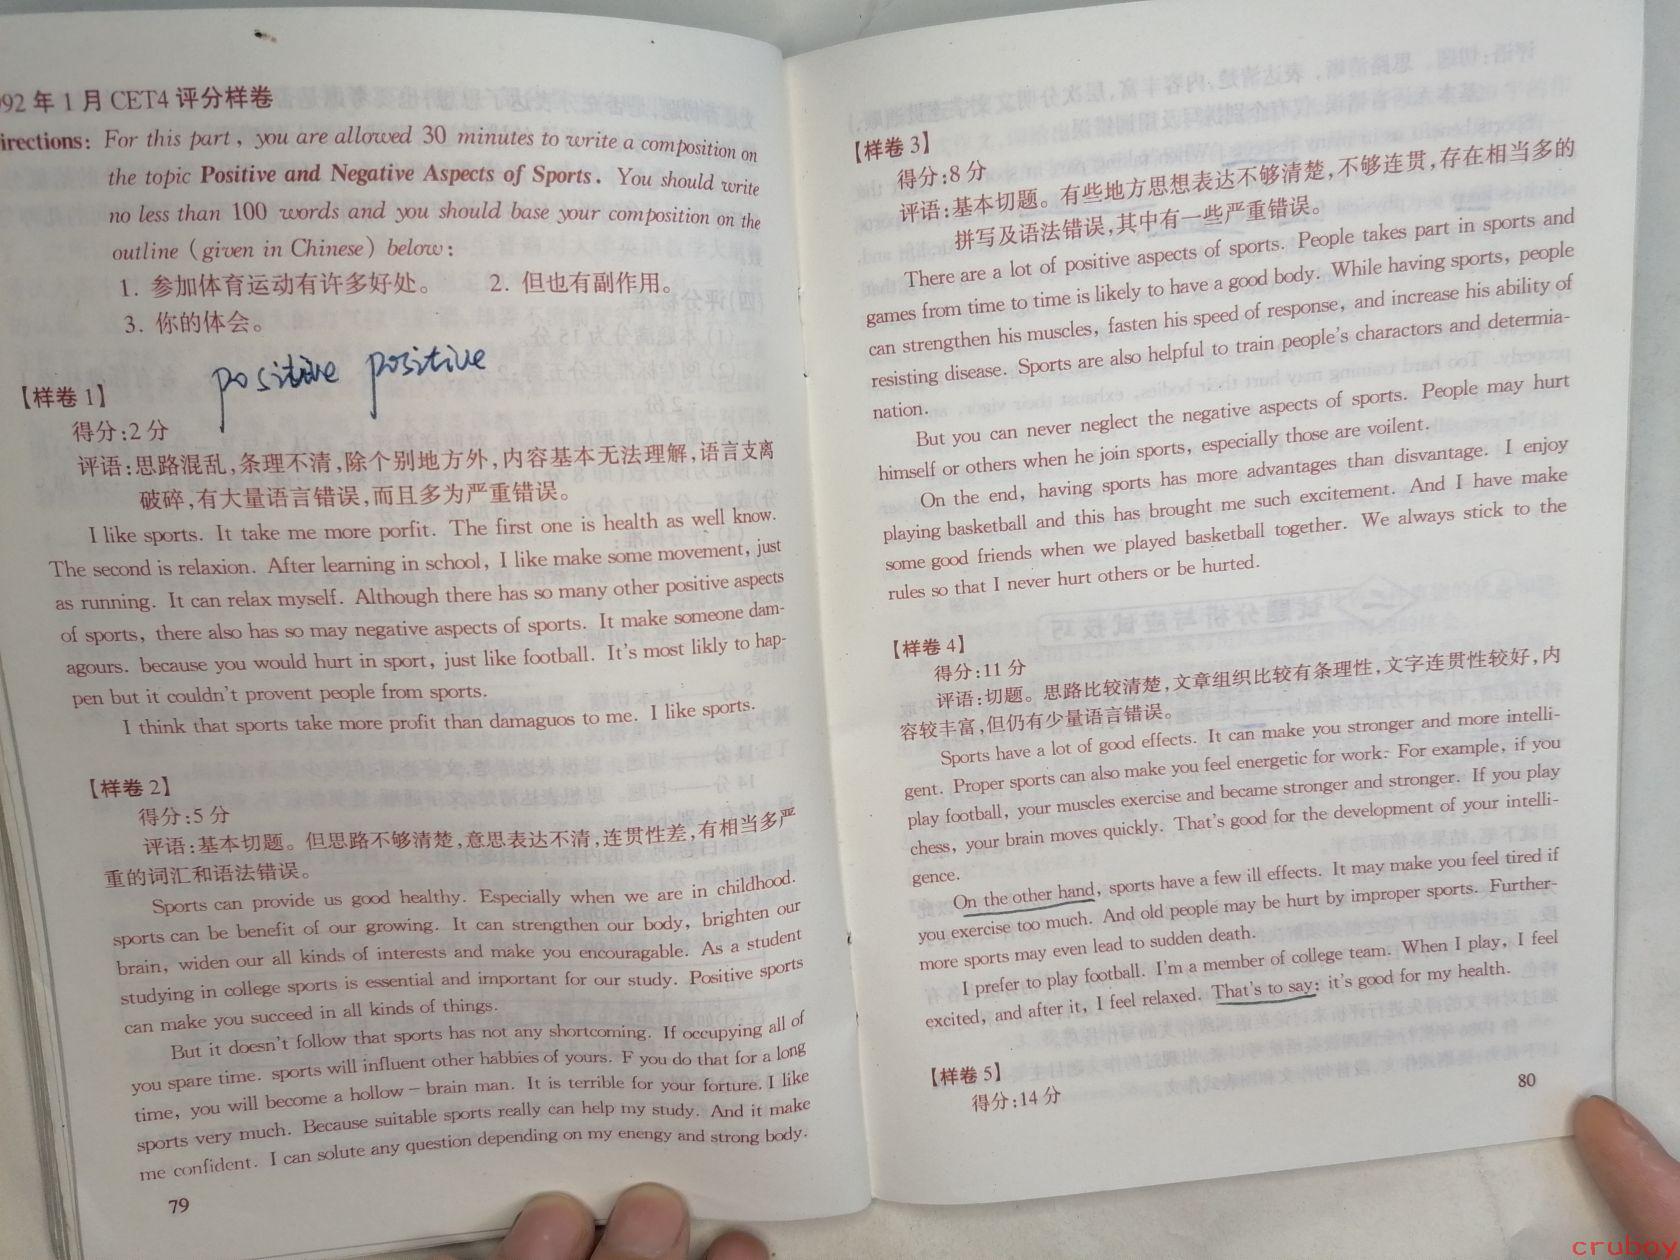 92 年 1 月 CET4 评分样卷
irections: For this part, you are allowed 30 minutes to write a composition on
the topic Positive and Negative Aspects of Sports. You should write
no less than 100 words and you should base your composition on the
outline (given in Chinese) below:
1. 参加体育运动有许多好处。 2. 但也有副作用。
3. 你的体会。
positive positive
【样卷 1】
得分:2 分
评语:思路混乱,条理不清,除个别地方外,内容基本无法理解,语言支离
破碎,有大量语言错误,而且多为严重错误。
I like sports. It take me more porfit. The first one is health as well know.
The second is relaxion. After learning in school, I like make some movement, just
as running. It can relax myself. Although there has so many other positive aspects
of sports, there also has so may negative aspects of sports. It make someone dam-
agours. because you would hurt in sport, just like football. It's most likly to hap-
pen but it couldn't provent people from sports.
I think that sports take more profit than damaguos to me. I like sports.
【样卷 2】
得分:5 分
评语:基本切题。但思路不够清楚,意思表达不清,连贯性差,有相当多严
重的词汇和语法错误。
Sports can provide us good healthy. Especially when we are in childhood.
sports can be benefit of our growing. It can strengthen our body, brighten our
brain, widen our all kinds of interests and make you encouragable. As a student
studying in college sports is essential and important for our study. Positive sports
can make you succeed in all kinds of things.
But it doesn't follow that sports has not any shortcoming. If occupying all of
you spare time. sports will influent other habbies of yours. F you do that for a long
time, you will become a hollow-brain man. It is terrible for your forture. I like
sports very much. Because suitable sports really can help my study. And it make
me confident. I can solute any question depending on my enengy and strong body.
79
【样卷 3】
得分:8 分
评语:基本切题。有些地方思想表达不够清楚,不够连贯,存在相当多的
拼写及语法错误,其中有一些严重错误。
There are a lot of positive aspects of sports. People takes part in sports and
games from time to time is likely to have a good body. While having sports, people
can strengthen his muscles, fasten his speed of response, and increase his ability of
resisting disease. Sports are also helpful to train people's charactors and determia-
nation.
But you can never neglect the negative aspects of sports. People may hurt
himself or others when he join sports, especially those are voilent.
On the end, having sports has more advantages than disvantage. I enjoy
playing basketball and this has brought me such excitement. And I have make
some good friends when we played basketball together. We always stick to the
rules so that I never hurt others or be hurted.
【样卷 4】
得分:11 分
评语:切题。思路比较清楚,文章组织比较有条理性,文字连贯性较好,内
容较丰富,但仍有少量语言错误。
Sports have a lot of good effects. It can make you stronger and more intelli-
gent. Proper sports can also make you feel energetic for work. For example, if you
play football, your muscles exercise and became stronger and stronger. If you play
chess, your brain moves quickly. That's good for the development of your intelli-
gence.
On the other hand, sports have a few ill effects. It may make you feel tired if
you exercise too much. And old people may be hurt by improper sports. Further-
more sports may even lead to sudden death.
I prefer to play football. I'm a member of college team. When I play, I feel
excited, and after it, I feel relaxed. That's to say: it's good for my health.
【样卷 5】
得分:14 分
80
cruboy